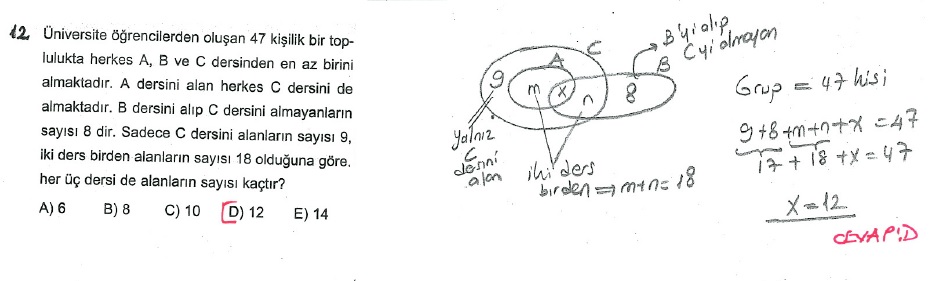 12. Üniversite öğrencilerden oluşan 47 kişilik bir top-
lulukta herkes A, B ve C dersinden en az birini
almaktadır. A dersini alan herkes C dersini de
almaktadır. B dersini alıp C dersini almayanların
sayısı 8 dir. Sadece C dersini alanların sayısı 9,
iki ders birden alanların sayısı 18 olduğuna göre,
her üç dersi de alanların sayısı kaçtır?
A) 6 B) 8 C) 10 D) 12 E) 14
B'yi alıp
C yi almayan
C
A
B
9
m
x
n
8
Yalnız
C
dersini
alan
iki ders
birden ⇒ m+n=18
Grup = 47 kişi
9+8+m+n+x=47
17+18+x=47
x=12
CEVAP:D